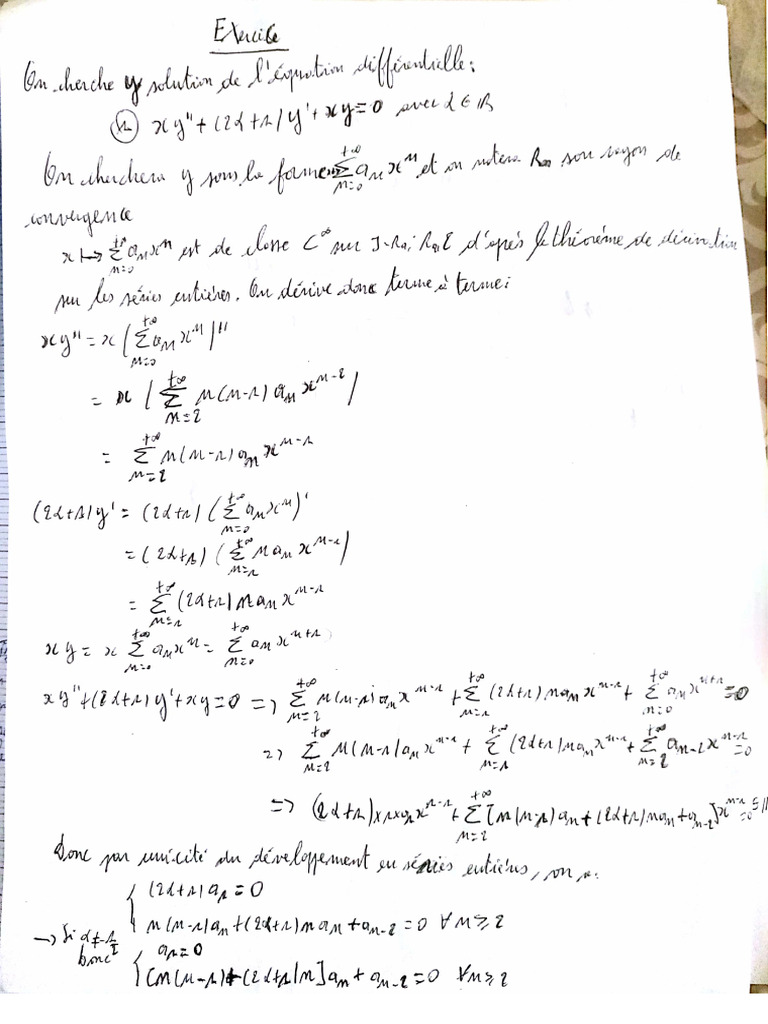 Exercice
On cherche y solution de l'équation différentielle :
(1) xy'' + (2α+1)y' + xy = 0 avec α ∈ ℝ
On cherchera y sous la forme Σ_{n=0}^{+∞} a_n x^n et on notera R_a son rayon de
convergence
x ↦ Σ_{n=0}^{+∞} a_n x^n est de classe C^∞ sur ]-R_a; R_a[ d'après le théorème de dérivation
sur les séries entières. On dérive donc terme à terme :
xy'' = x (Σ_{n=0}^{+∞} a_n x^n)''
= x (Σ_{n=2}^{+∞} n(n-1) a_n x^{n-2})
= Σ_{n=2}^{+∞} n(n-1) a_n x^{n-1}
(2α+1)y' = (2α+1) (Σ_{n=0}^{+∞} a_n x^n)'
= (2α+1) (Σ_{n=1}^{+∞} n a_n x^{n-1})
= Σ_{n=1}^{+∞} (2α+1) n a_n x^{n-1}
xy = x Σ_{n=0}^{+∞} a_n x^n = Σ_{n=0}^{+∞} a_n x^{n+1}
xy'' + (2α+1)y' + xy = 0 => Σ_{n=2}^{+∞} n(n-1) a_n x^{n-1} + Σ_{n=1}^{+∞} (2α+1) n a_n x^{n-1} + Σ_{n=0}^{+∞} a_n x^{n+1} = 0
=> Σ_{n=2}^{+∞} n(n-1) a_n x^{n-1} + Σ_{n=1}^{+∞} (2α+1) n a_n x^{n-1} + Σ_{n=2}^{+∞} a_{n-2} x^{n-1} = 0
=> (2α+1)×1×a_1 x^{1-1} + Σ_{n=2}^{+∞} [n(n-1) a_n + (2α+1) n a_n + a_{n-2}] x^{n-1} = 0
Donc par unicité du développement en séries entières, on a :
{ (2α+1) a_1 = 0
n(n-1) a_n + (2α+1) n a_n + a_{n-2} = 0 ∀ n ≥ 2
→ Si α ≠ -1/2
Donc { a_1 = 0
[n(n-1) + (2α+1)n] a_n + a_{n-2} = 0 ∀ n ≥ 2